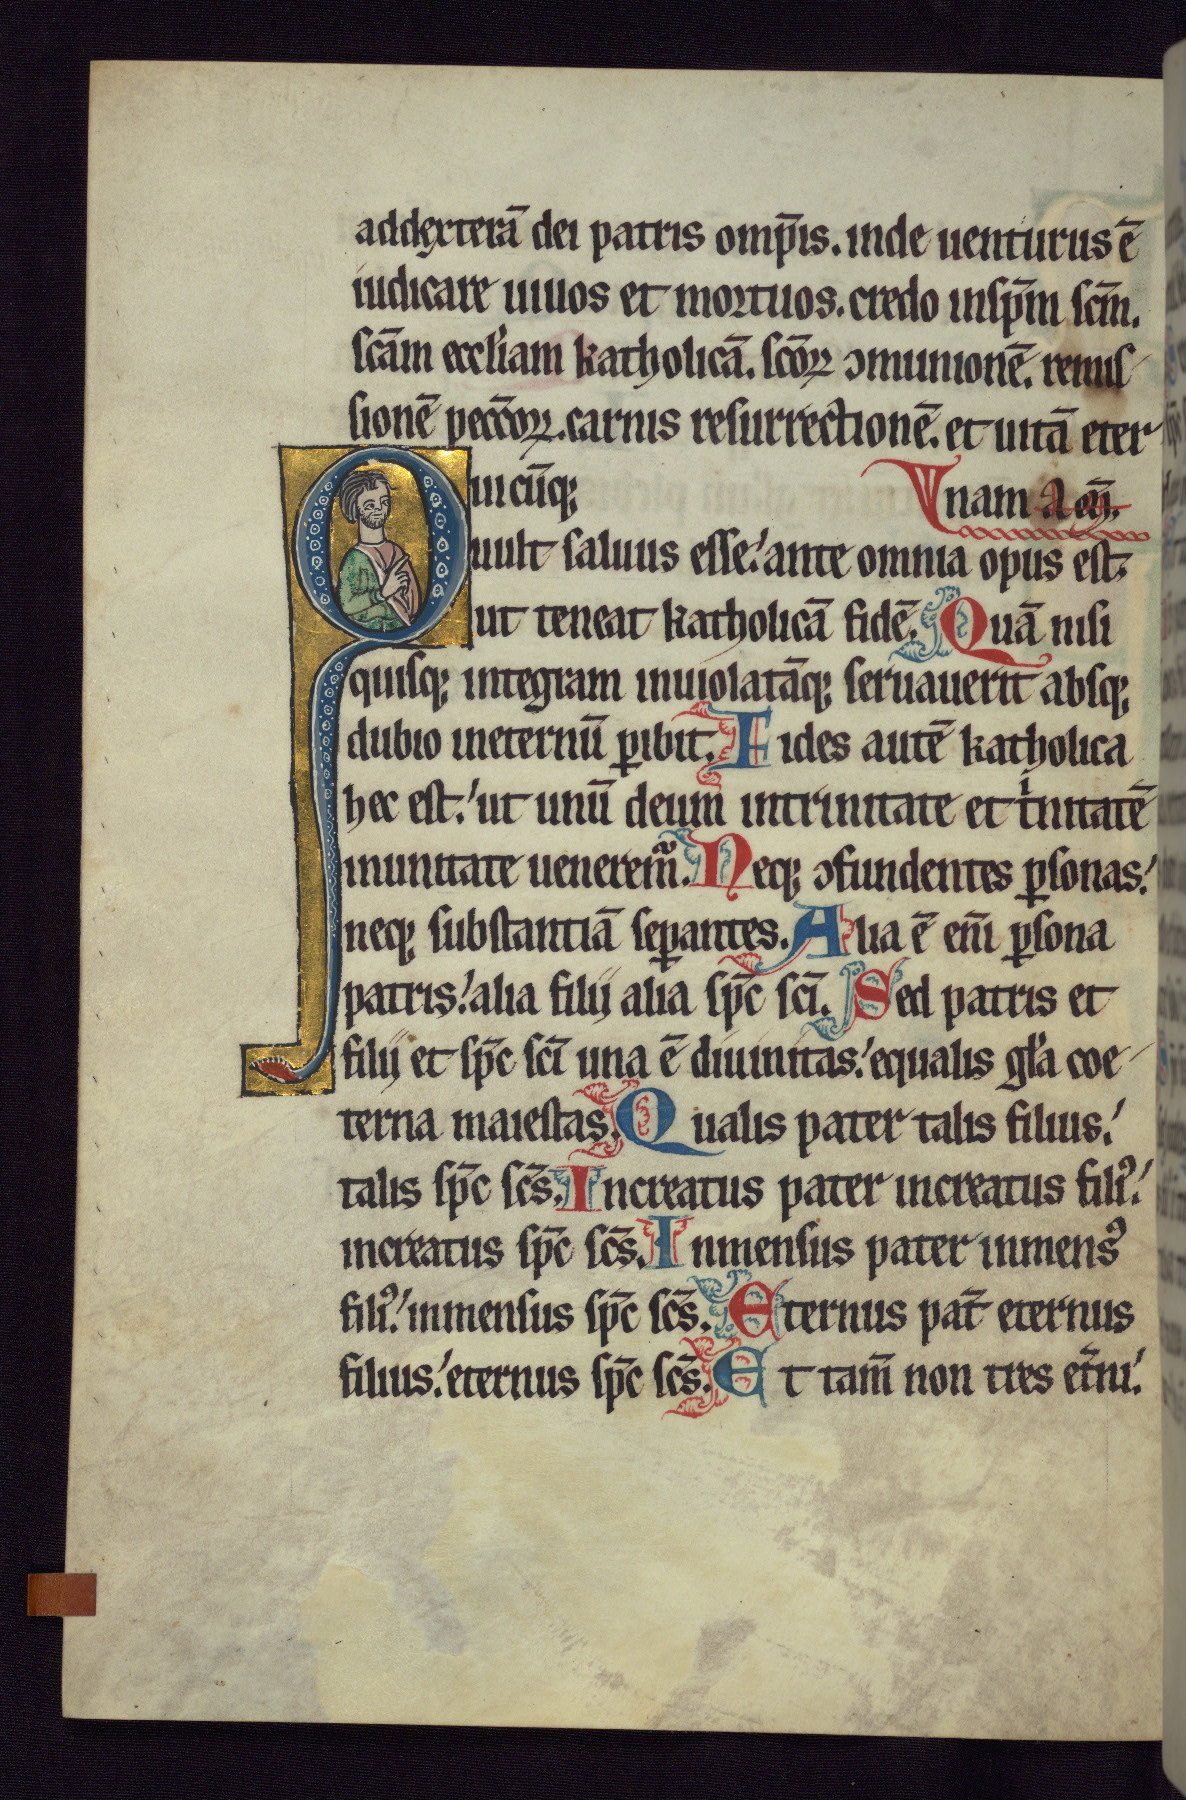 addexterā dei patris omp̄is. inde uenturus ē
iudicare uiuos et mortuos. credo insp̄m scm̄.
scām eccl'iam katholicā. scōꝝ ɔmunionē. remis-
sionē peccōꝝ. carnis resurrectionē. et uitā eter
nam Am̄.
Quicūqꝫ
uult saluus esse: ante omnia opus est
ut teneat katholicā fidē. Quā nisi
quisqꝫ integram inuiolatāqꝫ seruauerit absqꝫ
dubio ineternū ꝑibit. Fides autē katholica
hec est: ut unū deum intrinitate et tͥnitatē
inunitate ueneremᷣ. Neqꝫ ɔfundentes ꝑsonas:
neqꝫ substantiā seꝑantes. Alia ē enī ꝑsona
patris: alia filij alia sp̄c scī. Sed patris et
filij et sp̄c scī una ē diuinitas: equalis gl'a coe-
terna maiestas. Qualis pater talis filius:
talis sp̄c sc̄s. Increatus pater increatus fili᷒:
increatus sp̄c sc̄s. Inmensus pater inmens᷒
fili᷒: inmensus sp̄c sc̄s. Eternus pat̄ eternus
filius: eternus sp̄c sc̄s. Et tam̄ non tres et̄ni: